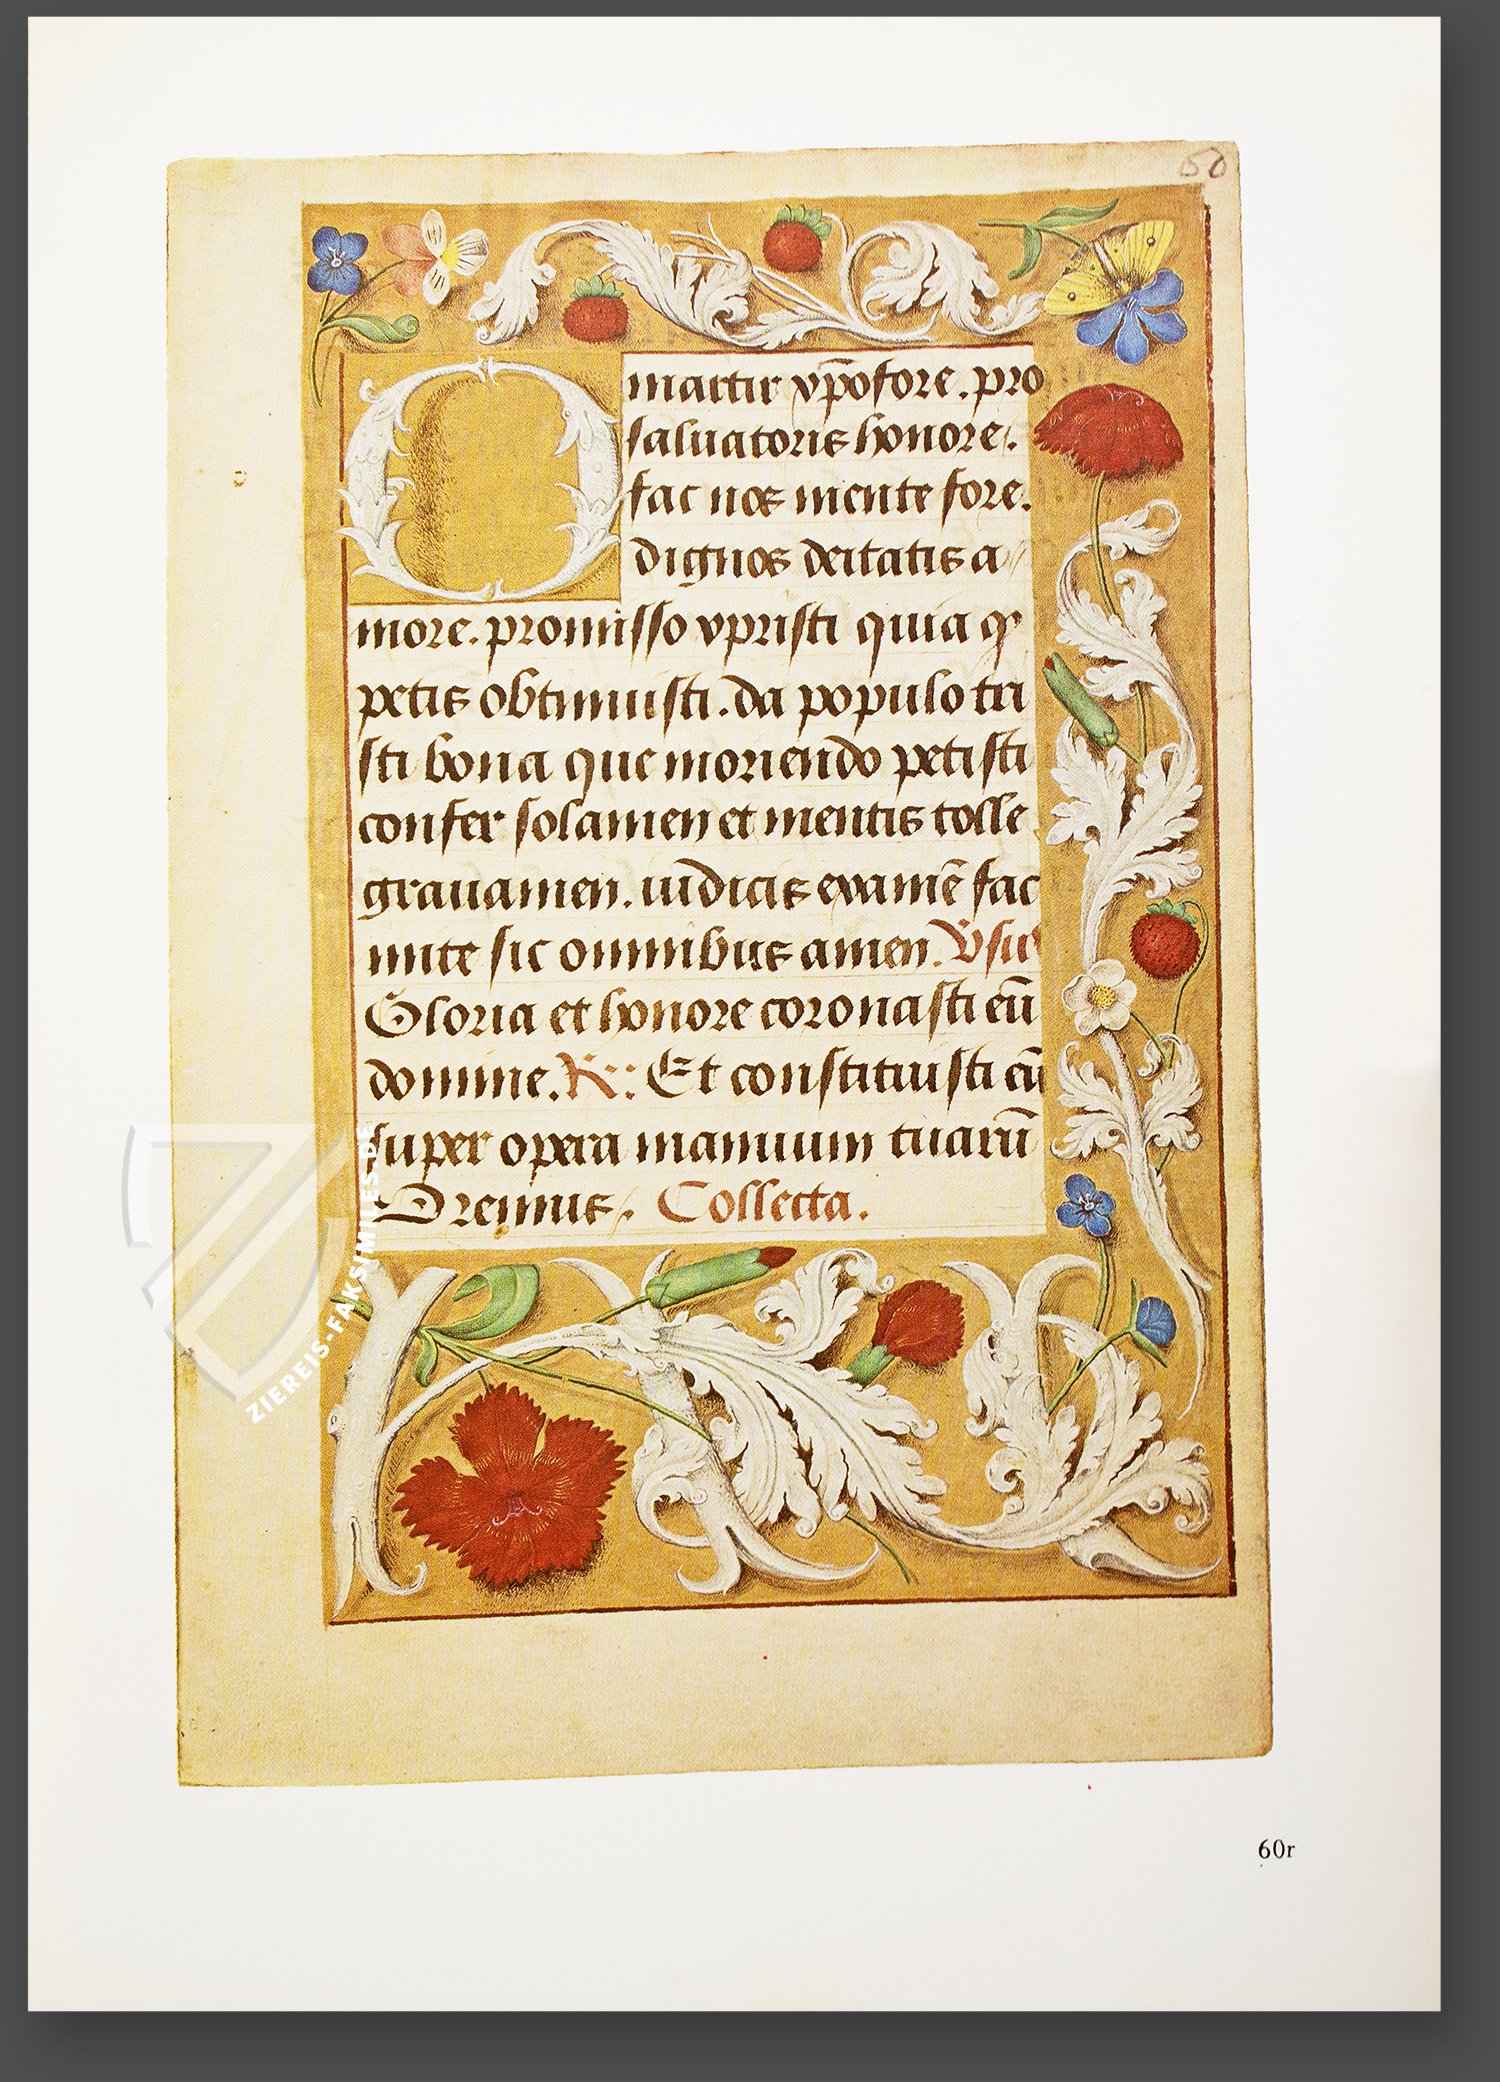 60
O martir xp̄ofore . pro
saluatoris honore .
fac nos mente fore .
dignos deitatis a
more . promisso xpristi quia qͦ
petis obtinuisti . da populo tri
sti bona que moriendo petisti
confer solamen et mentis tolle
grauamen . iudicis examē fac
mite sic omnibus amen . Vsus
Gloria et honore coronasti eū
domine . R : Et constituisti eū
super opera manuum tuarū
Oremus . Collecta .
ZIEREIS-FAKSIMILES.DE
60r